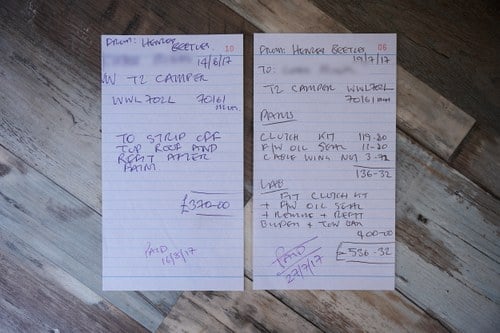 FROM: HENLEY
BEETLES. 10
14/6/17
VW T2 CAMPER
WWL702L 70161
TO STRIP OFF
TOP ROOF AND
REFIT AFTER
PAINT
£320-00
PAID
16/8/17
FROM: HENLEY BEETLES 06
TO: 19/7/17
T2 CAMPER WWL702L
70161
PARTS
CLUTCH KIT 119-20
F/W OIL SEAL
CABLE WING NUT
136-32
LAB
FIT CLUTCH KIT
+ F/W OIL SEAL
+ REMOVE + REFIT
BUMPER + TOW BAR
400-00
£536-32
PAID
27/7/17